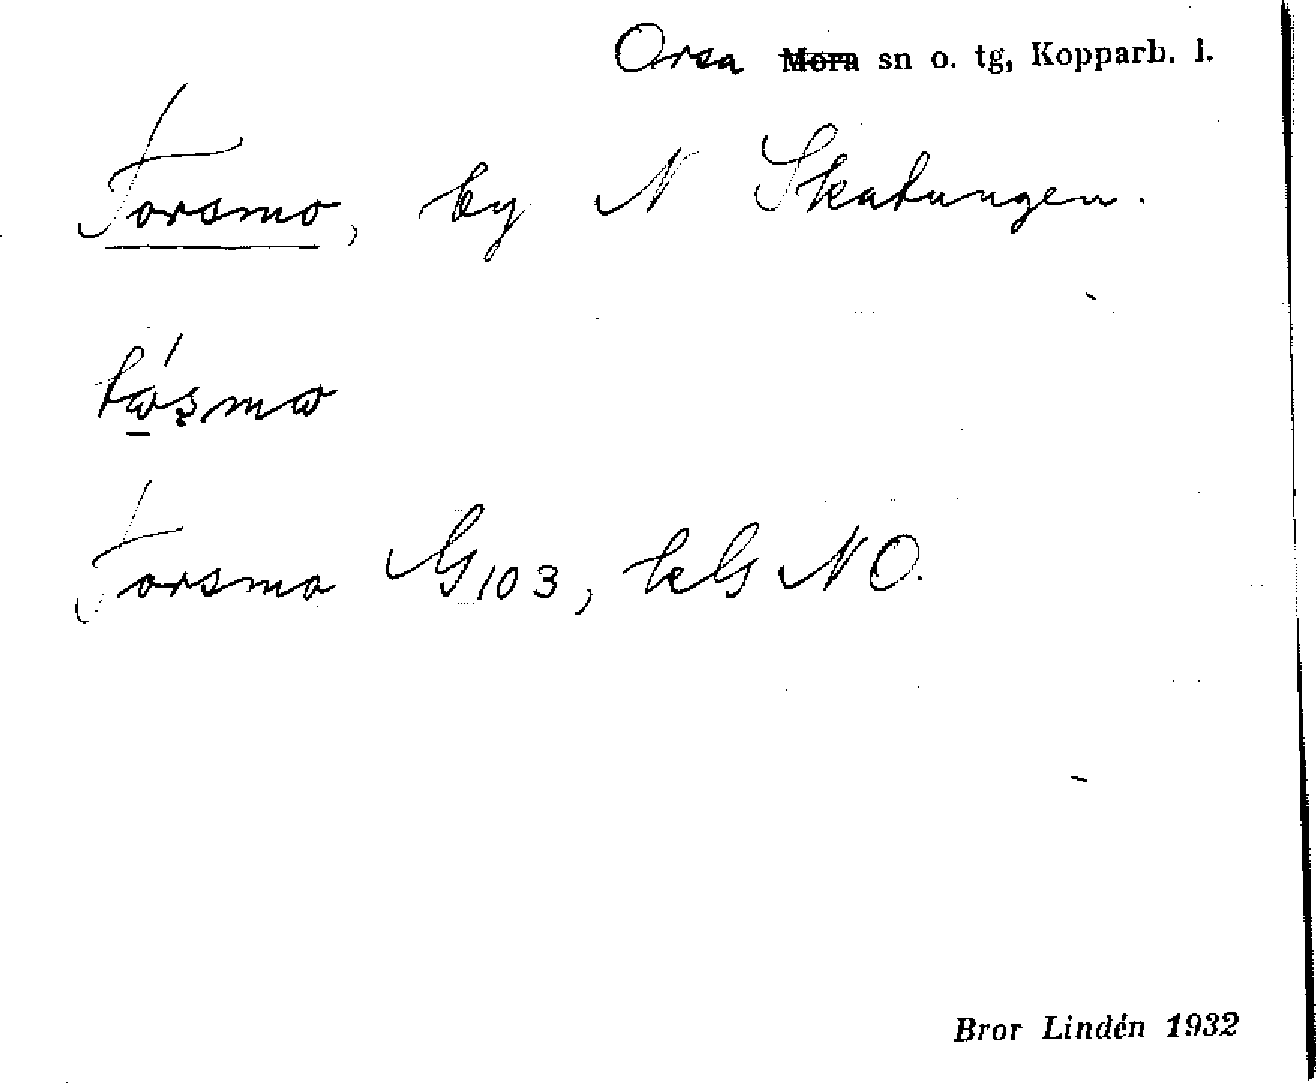 Orsa Mora sn o. tg, Kopparb. l.
Torsmo, by N Skatungen.
Torsmo G103, NO.
Bror Lindén 1932